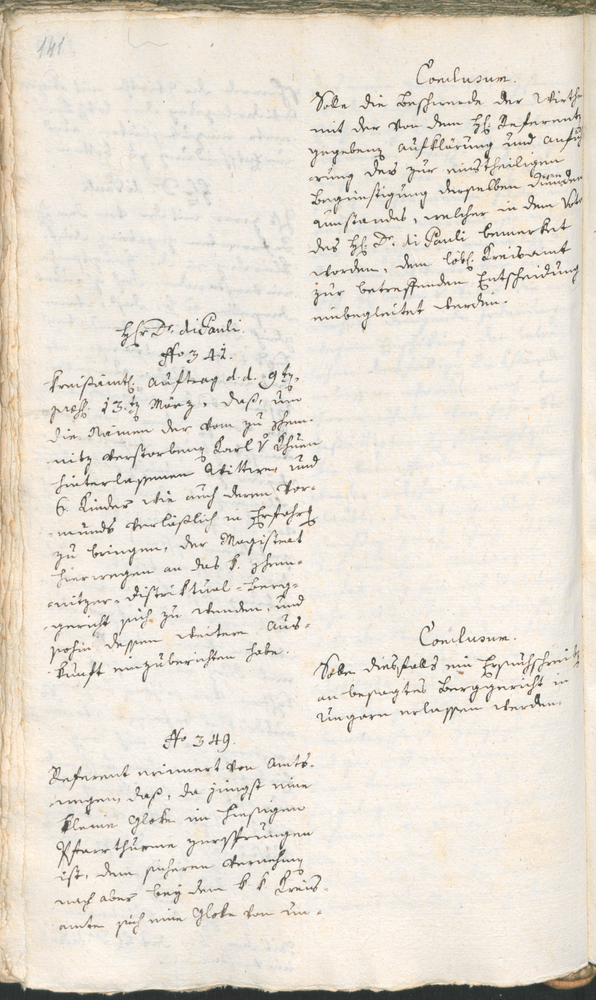 141
Conclusum.
Solle die Beschwerde der Wirthe
mit der von dem H. Referenten
gegebenen Aufklärung und Anfüh-
rung des zur einstheiligen
Begünstigung derselben dienenden
Umstandes, welcher in dem Voto
des H. Dr. di Pauli bemerket
worden, dem löbl. Kreisamt
zur betreffenden Entscheidung
einbegleitet werden.
Hr. Dr. di Pauli.
No 342.
Kreisämtl. Auftrag d. d. 9ten
praes. 13ten März, daß, um
die Namen der vom zu Schem-
nitz verstorbenen Karl v. Khuen
hinterlassenen Wittwe, und
6 Kinder wie auch deren Vor-
munds verläßlich in Erfahrung
zu bringen, der Magistrat
hierwegen an das k. Schem-
nitzer-Distriktual-Berg-
gericht sich zu wenden, und
sohin dessen weitere Aus-
kunft einzuberichten habe.
Conclusum.
Solle diesfalls ein Ersuchschreiben
an besagtes Berggericht in
Ungarn erlassen werden.
No 349.
Referent erinnert von Amts-
wegen, daß, da jüngst eine
kleine Gloke im hiesigen
Pfarrthurme zersprungen
ist, dem sicheren Vernehmen
nach aber bey dem k. k. Kreis-
amte sich eine Gloke von un-